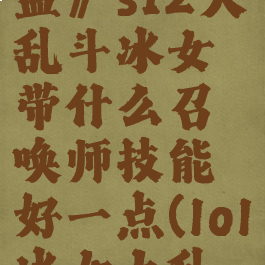 血//s12大
乱斗冰女
带什么召
唤师技能
好一点(lol
冰女大乱